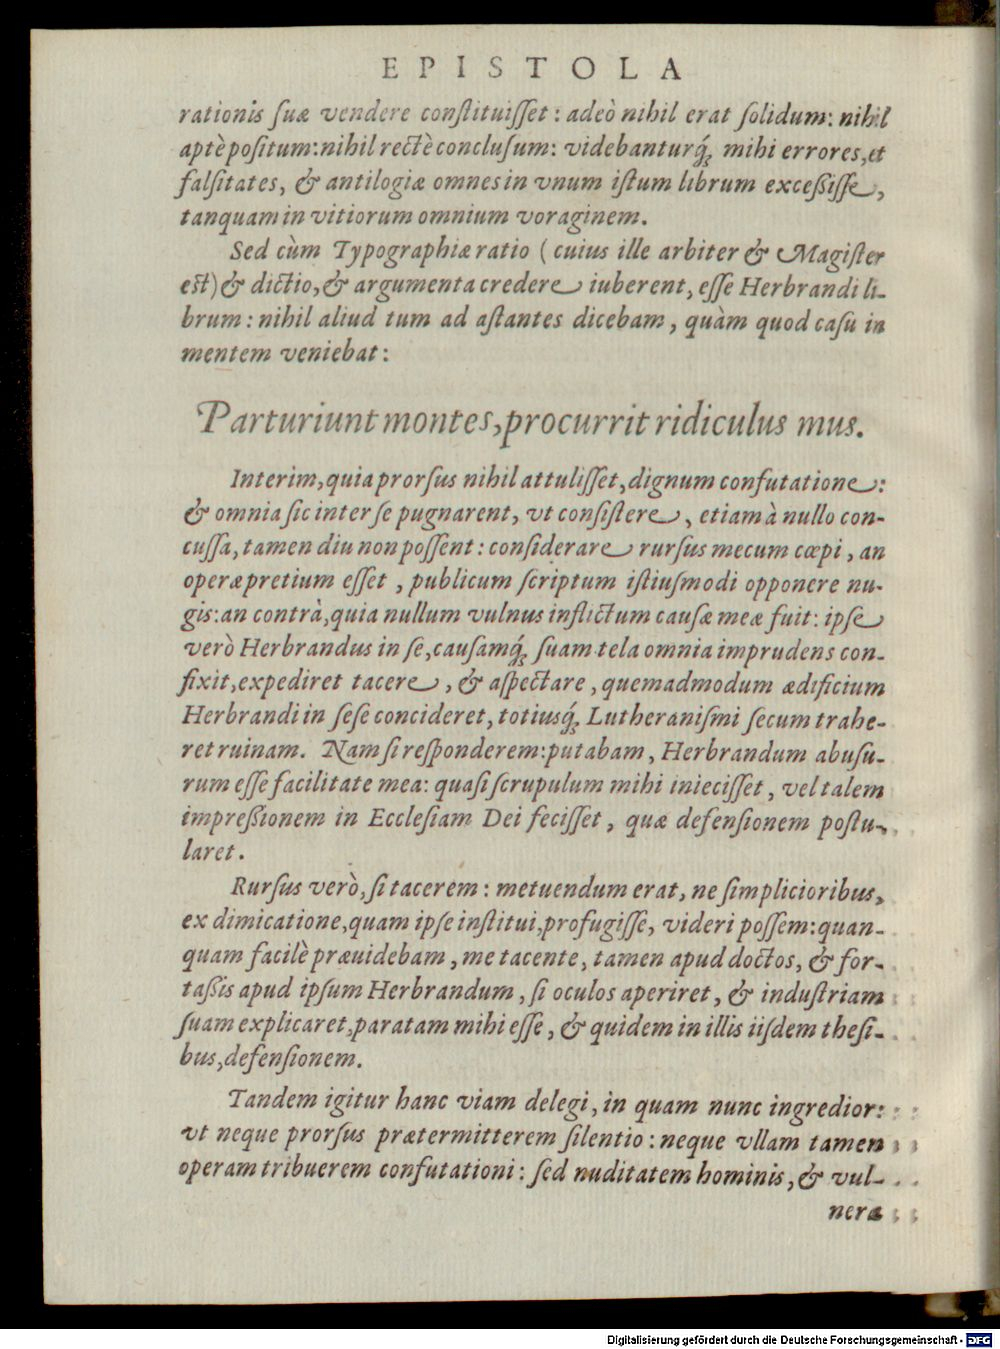 EPISTOLA
rationis ſuæ vendere conſtituiſſet: adeò nihil erat ſolidum: nihil
aptè poſitum: nihil rectè concluſum: videbanturq́; mihi errores, et
falſitates, & antilogiæ omnes in vnum iſtum librum exceßiſſe,
tanquam in vitiorum omnium voraginem.
Sed cùm Typographiæ ratio (cuius ille arbiter & Magiſter
eſt) & dictio, & argumenta credere iuberent, eſſe Herbrandi li-
brum: nihil aliud tum ad aſtantes dicebam, quàm quod caſu in
mentem veniebat:
Parturiunt montes, procurrit ridiculus mus.
Interim, quia prorſus nihil attuliſſet, dignum confutatione:
& omnia ſic inter ſe pugnarent, vt conſiſtere, etiam à nullo con-
cuſſa, tamen diu non poſſent: conſiderare rurſus mecum cœpi, an
operæpretium eſſet, publicum ſcriptum iſtiuſmodi opponere nu-
gis: an contrà, quia nullum vulnus inflictum cauſæ meæ fuit: ipſe
verò Herbrandus in ſe, cauſamq́; ſuam tela omnia imprudens con-
fixit, expediret tacere, & aſpectare, quemadmodum ædificium
Herbrandi in ſeſe concideret, totiusq́; Lutheraniſmi ſecum trahe-
ret ruinam. Nam ſi reſponderem: putabam, Herbrandum abuſu-
rum eſſe facilitate mea: quaſi ſcrupulum mihi inieciſſet, vel talem
impreßionem in Eccleſiam Dei feciſſet, quæ defenſionem poſtu-
laret.
Rurſus verò, ſi tacerem: metuendum erat, ne ſimplicioribus,
ex dimicatione, quam ipſe inſtitui, profugiſſe, videri poſſem: quan-
quam facilè præuidebam, me tacente, tamen apud doctos, & for-
taßis apud ipſum Herbrandum, ſi oculos aperiret, & induſtriam
ſuam explicaret, paratam mihi eſſe, & quidem in illis iiſdem theſi-
bus, defenſionem.
Tandem igitur hanc viam delegi, in quam nunc ingredior:
vt neque prorſus prætermitterem ſilentio: neque vllam tamen
operam tribuerem confutationi: ſed nuditatem hominis, & vul-
nera
Digitalisierung gefördert durch die Deutsche Forschungsgemeinschaft - DFG